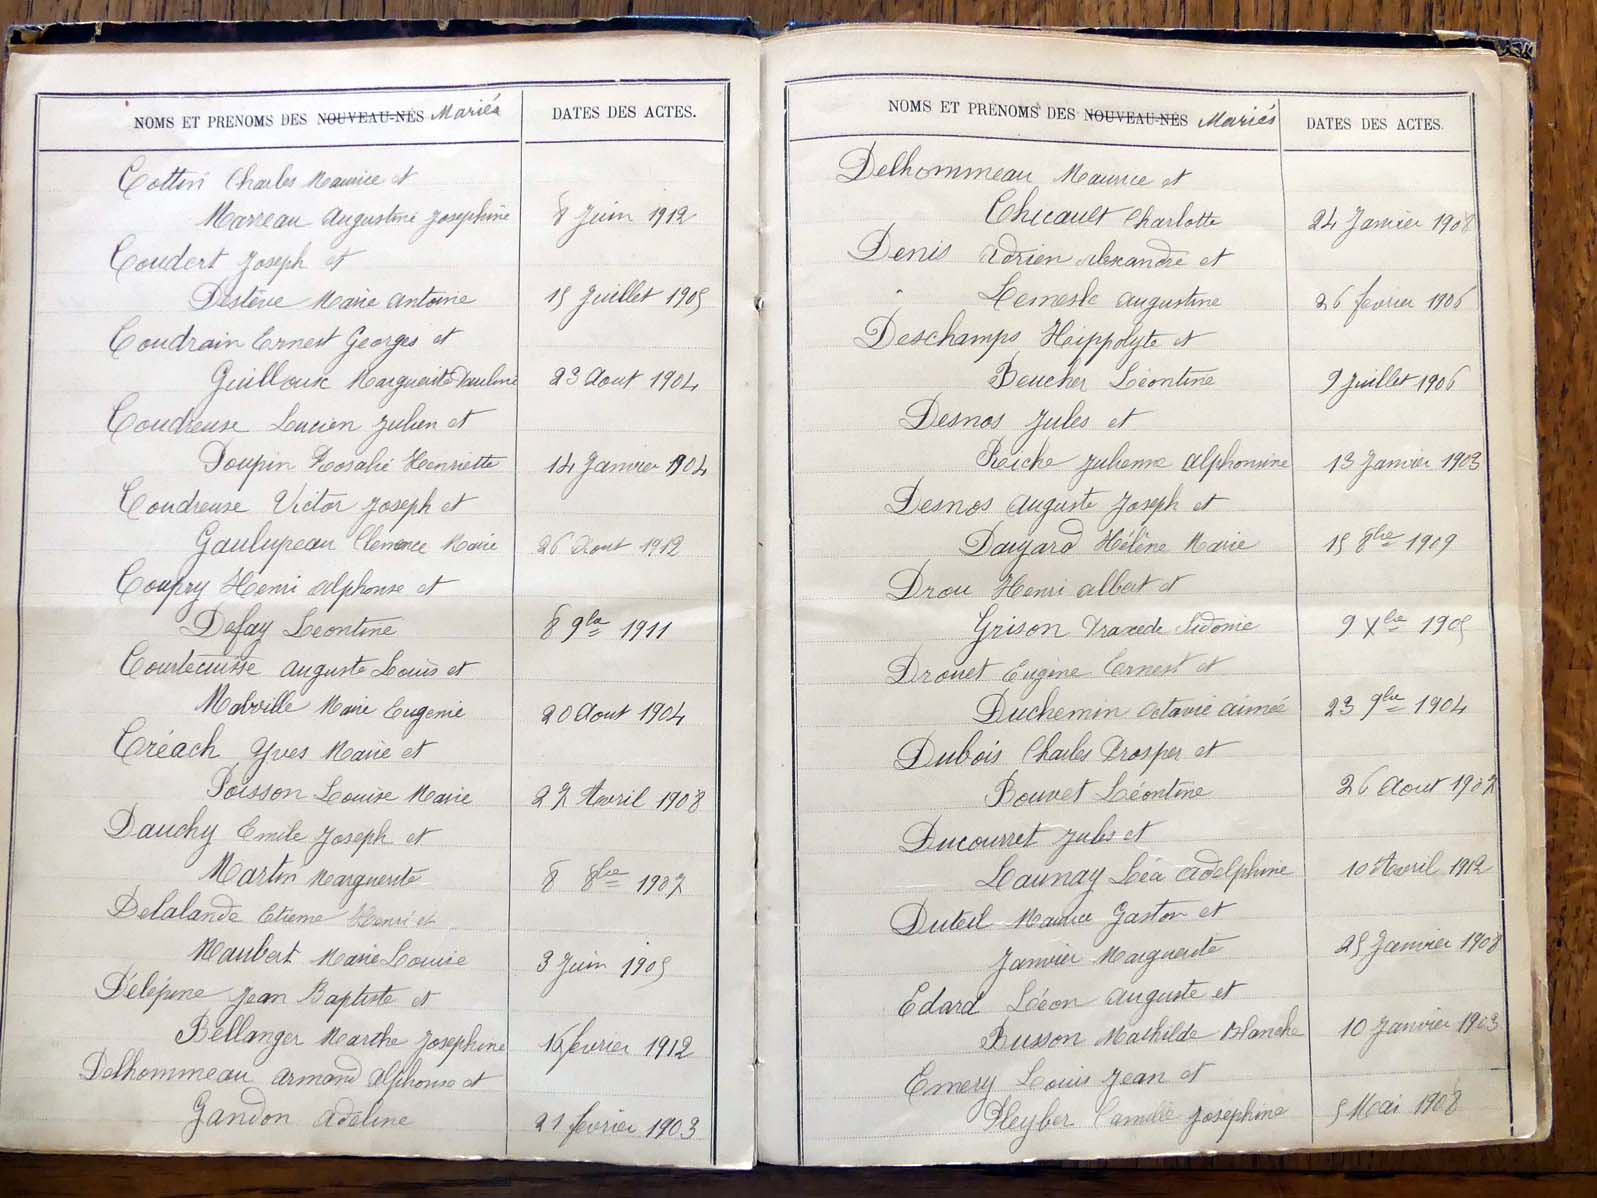 NOMS ET PRENOMS DES NOUVEAU-NÉS Mariés DATES DES ACTES.
Cottin Charles Maurice et
Marreau Augustine Josephine 8 Juin 1912
Coudert Joseph et
Destève Marie Antoine 15 Juillet 1905
Coudrain Ernest Georges et
Guilloux Marguerite Pauline 23 Aout 1904
Coudreuse Lucien Julien et
Poupin Rosalie Henriette 14 Janvier 1904
Coudreuse Victor Joseph et
Gaulupeau Clemence Marie 26 Aout 1912
Coupry Henri Alphonse et
Defay Leontine 8 9bre 1911
Courtecuisse Auguste Louis et
Marie Eugenie 20 Aout 1904
Créach Yves Marie et
Poisson Louise Marie Avril 1908
Dauchy Emile Joseph et
Martin Marguerite 8 8bre 1907
Delalande Etienne Henri et
Maubert Marie Louise 3 Juin 1905
Délépine Jean Baptiste et
Bellanger Marthe Josephine fevrier 1912
Delhommeau Armand Alphonse et
Gandon Adeline 21 fevrier 1903
NOMS ET PRENOMS DES NOUVEAU-NÉS Mariés DATES DES ACTES.
Delhommeau Maurice et
Chicault Charlotte 24 Janvier 1908
Denis Adrien Alexandre et
Lemesle Augustine 26 fevrier 1906
Deschamps Hippolyte et
Beucher Léontine 9 Juillet 1906
Desnos Jules et
Reiche Julienne Alphonsine 13 Janvier 1903
Desnos Auguste Joseph et
Hélène Marie 15 8bre 1909
Drou Henri Albert et
Grison Praxede Sidonie 9 Xbre 1905
Drouet Eugène Ernest et
Duchemin Octavie Aimée 23 9bre 1904
Dubois Charles Prosper et
Bouvet Léontine 26 Aout 1907
Ducourret Jules et
Launay Léa Adelphine 10 Avril 1912
Duteil Maurice Gaston et
Janvier Marguerite 25 Janvier 1908
Edard Léon Auguste et
Busson Mathilde Blanche 10 Janvier 1903
Emery Louis Jean et
Pleyber Camille Josephine 5 Mai 1908